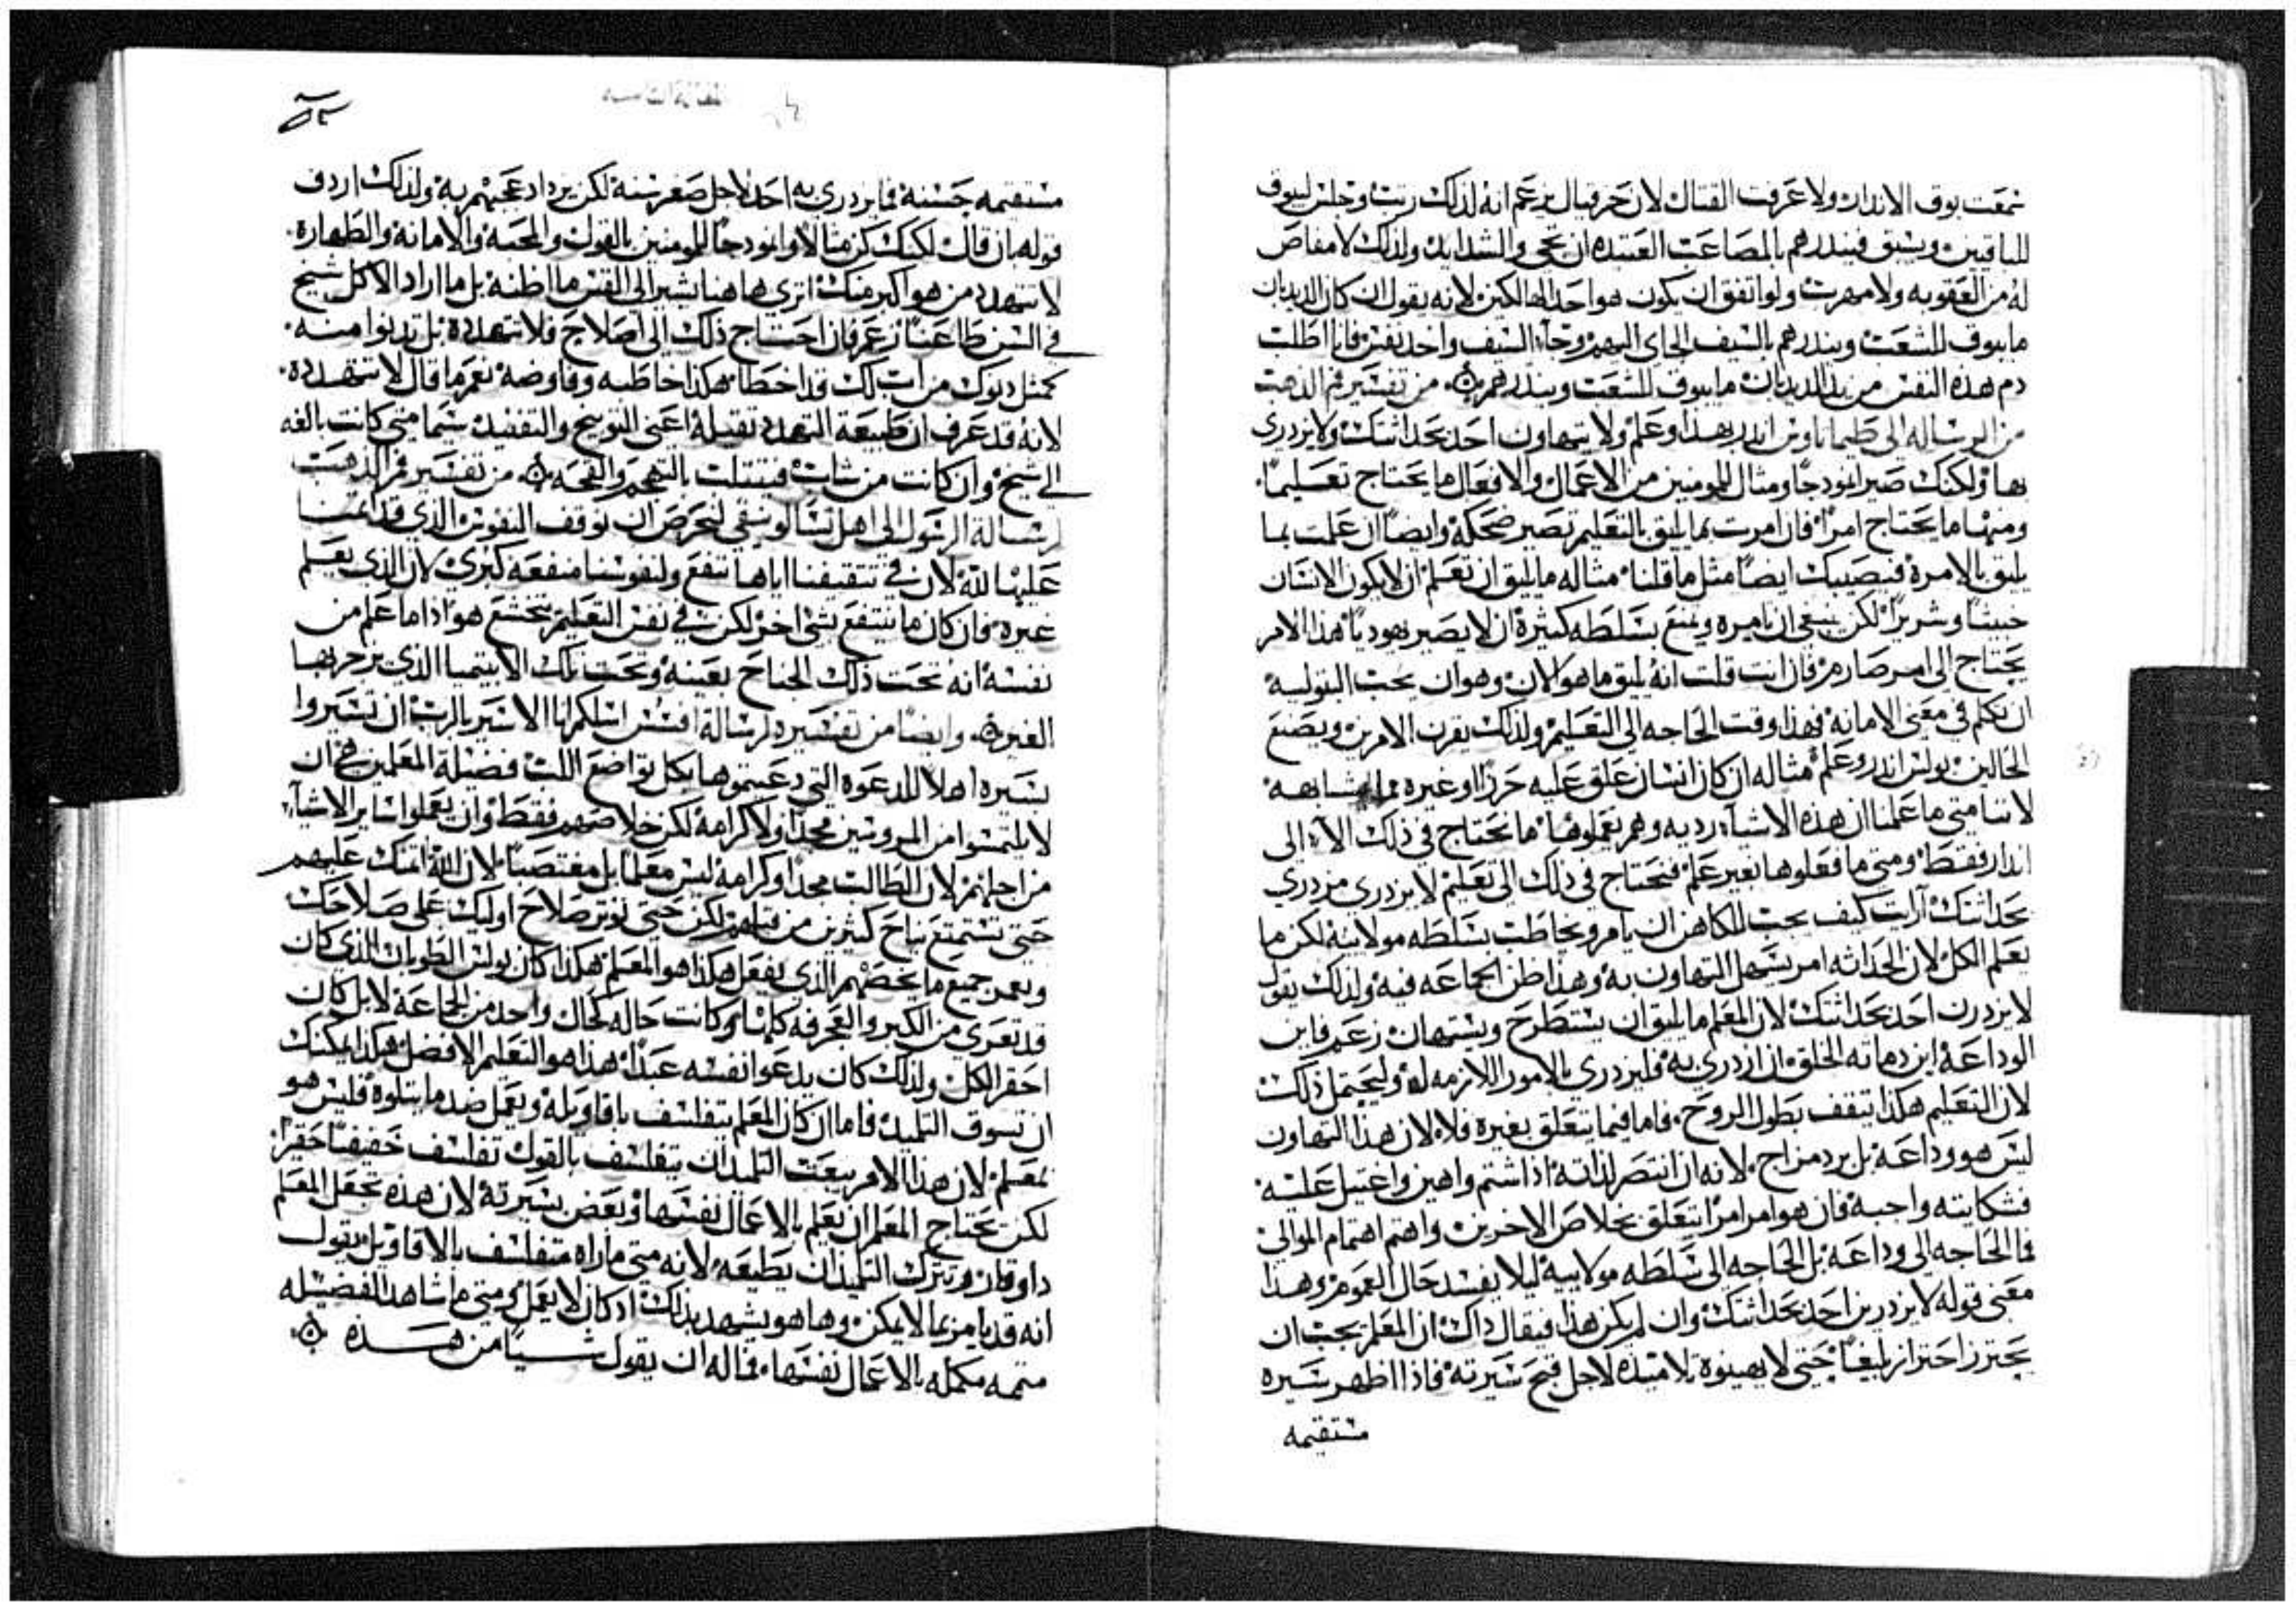 سمعت بوق الانذار ولا عرفت القتال لان حزقيال يزعم انه لذلك رتب وجلس ليبوق
للباقين وبسبق فينذرهم بالمصاعب العتيده ان تجي والشدايد ولذلك لا مفاص
له من العقوبه ولا مهرب ولو اتفق ان يكون هو احد الهالكين لانه يقول ان كان الديدبان
ما يبوق للشعب وينذرهم بالسيف الجاي اليهم وجاء السيف واخذ نفس فانا اطلب
دم هذه النفس من يد الديدبان ما يبوق للشعب وينذرهم من تفسير فم الذهب
من الرساله الى طيماتاوس انذر بهذا وعلم ولا يتهاون احد بحداثتك ولا يزدري
بها ولكنك صير انموذجا ومثال للمومنين من الاعمال والافعال ما يحتاج تعليما
ومنها ما يحتاج امرا فان امرت بما يليق بالتعليم تصير ضحكة وايضا ان علمت بما
يليق بالامرة فيصيبك ايضا مثل ما قلنا مثاله ما يليق ان تعلم ان لا يكون الانسان
خبيثا وشريرا لكن ينبغي ان يامره ويمنع بسلطه كثيرة ان لا يصير يهوديا هذا الامر
يحتاج الى امر صارم فان انت قلت انه يليق ما هو لان وهو ان يحب البتوليه
ان تكلم في معنى الامانه فهذا وقت الحاجه الى التعليم ولذلك يقرن الامرين ويصنع
الحالين بولس انذر وعلم مثاله ان كان انسان علق عليه حرزا او غيره مما يشابهه
لاننا متى ما علمنا ان هذه الاشياء رديه وهم يعملوها ما نحتاج في ذلك الا الى
انذار فقط ومتى ما فعلوها بغير علم فنحتاج في ذلك الى تعليم لا يزدري مزدري
بحداثتك ارايت كيف يجب للكاهن ان يامر ويخاطب بسلطه مولانيه لكن ما
يعلم الكل لان الحداثه امر يسهل التهاون به وهذا ظن الجماعه فيه ولذلك يقول
لا يزدرن احد بحداثتك لان المعلم ما يليق ان يستطرح ويستهان زعم فاين
الوداعة اين دماثه الخلق ان ازدري به فليزدري بالامور اللازمه له وليحتمل ذلك
لان التعليم هكذا يثقف بطول الروح فاما فيما يتعلق بغيره فلا لان هذا التهاون
ليس هو وداعه بل برد مزاج لانه ان انتصر لذاته اذا شتم واهين واغتيل عليه
فشكايته واجبة فان هو امر امرا يتعلق بخلاص الاخرين واهتم اهتمام الموالي
فما الحاجه الى وداعه بل الحاجه الى سلطه مولانيه ليلا يفسد حال العموم وهذا
معنى قوله لا يزدرين احد بحداثتك وان لم يكن هذا فيقال ذاك ان المعلم يجب ان
يحترز احترازا بليغا حتى لا يهينوه تلاميذه لاجل قبح سيرته فاذا اظهر سيره
مستقيمه
مستقيمه حسنة فما يزدري به احد لاجل صغر سنه لكن يزداد عجبهم به ولذلك اردف
قوله بان قال لكنك كن مثالا وانموذجا للمومنين بالقول والمحبه والامانه والطهارة
لا تنتهر من هو اكبر منك اترى هاهنا يشير الى القس ما اظنه بل ما اراد الا كل شيخ
في السن طاعنا زعم فان احتاج ذلك الى اصلاح فلا تنتهره بل تدنوا منه
كمثل دنوك من اب لك قد اخطا هكذا خاطبه وفاوضه نعم ما قال لا تنتهره
لانه قد عرف ان طبيعة التهدد ثقيلة اعني التوبيخ والتفنيد سيما متى كانت بالغه
الى شيخ وان كانت من شاب فيتثلت بالتهجم والقحه من تفسير فم الذهب
لرسالة الرسول الى اهل تسالونيقي لنحرص ان نوقف النفوس الذي قد ايتمننا
عليها الله لان في تثقيفنا اياها تنفع ولنفوسنا منفعه كبرى لان الذي يعلم
غيره فان كان ما ينتفع بشي اخر لكن في نفس التعليم يتخشع هو اذا ما علم من
نفسه انه تحت ذلك الجناح بعينه وتحت تلك الابيتميا الذي يزجر بها
الغير وايضا من تفسيره لرسالة افسس اسلكم انا الاسير بالرب ان تسيروا
بسيره اهلا للدعوه التي دعيتموها بكل تواضع اللب فضيلة المعلمين هي ان
لا يلتمسوا من المروسين مجدا ولا كرامة لكن خلاصهم فقط وان يعملوا ساير الاشياء
من اجلهم لان الطالب مجدا وكرامه ليس معلما بل مغتصبا لان الله اتمنك عليهم
حتى تستمتع نياح كثيرين من قبلهم لكن حتى توتر صلاح اوليك على صلاحك
وتعمر جميع ما يخصهم الذي يفعل هكذا هو المعلم هكذا كان بولس الطوبان الذي كان
قد تعرى من الكبر والعجرفه كلها وكانت حاله كحال واحد من الجماعة لا بل كان
احقر الكل ولذلك كان يدعوا نفسه عبدا هذا هو التعليم الافضل هكذا يمكنك
ان تسوق التلميذ فاما ان كان المعلم يتفلسف باقاويله ويعمل ضد ما يتلوه فليس هو
بمعلم لان هذا الامر يبعث التلميذ ان يتفلسف بالقول تفلسف خفيفا حقيرا
لكن يحتاج المعلم ان يعلم بالاعمال نفسها وبعض بسيرته لان هذه تجعل المعلم
ذا وقار وتترك التلميذ ان يطيعه لانه متى ما راه متفلسف بالاقاويل يقول
انه قد يامر بما لا يمكن وها هو يشهد بذلك اذ كان لا يعمل ومتى ما شاهد الفضيله
متممه مكمله بالاعمال نفسها فما له ان يقول شيا من هذه